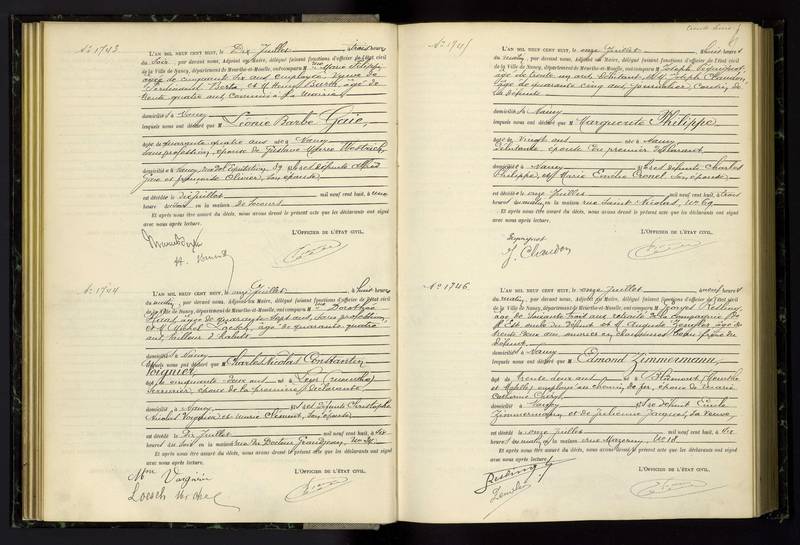 N° 1743
L'AN MIL NEUF CENT HUIT, le Dix Juillet à trois heures
du soir, par devant nous, Adjoint au Maire, délégué faisant fonctions d'officier de l'état civil
de la Ville de Nancy, département de Meurthe-et-Moselle, ont comparu Mme Marie
âgée de cinquante six ans employée, Veuve de
Ferdinand et M. Henri âgé de
trente quatre ans, commis à la mairie
domiciliés à Nancy
lesquels nous ont déclaré que M Léonie Barbe Gaie,
âgée de quarante quatre ans née à Nancy
sans profession, épouse de Gustave Marie
domiciliée à Nancy, 39 et des défunts Alfred
Gaie et Françoise Olivier, son épouse
est décédée le dix juillet mil neuf cent huit, à une
heure du soir en la maison de Secours
Et après nous être assuré du décès, nous avons dressé le présent acte que les déclarants ont signé
avec nous après lecture.
L'OFFICIER DE L'ÉTAT CIVIL.
N° 1744
L'AN MIL NEUF CENT HUIT, le onze Juillet, à huit heures
du matin, par devant nous, Adjoint au Maire, délégué faisant fonctions d'officier de l'état civil
de la Ville de Nancy, département de Meurthe-et-Moselle, ont comparu Mme Dorothée
âgée de quarante sept ans, sans profession
et M. Michel Loesch, âgé de quarante quatre
ans, tailleur d'habits
domiciliés à Nancy
lesquels nous ont déclaré que M Charles Nicolas Constantin
Voignier,
âgé de cinquante deux ans né à
serrurier, époux de la première déclarante
domicilié à Nancy et des défunts Christophe
Nicolas Voignier et Marie Clément, son épouse
est décédé le Dix Juillet mil neuf cent huit, à six
heures du soir en la maison rue du Docteur Grandjean,
Et après nous être assuré du décès, nous avons dressé le présent acte que les déclarants ont signé
avec nous après lecture.
L'OFFICIER DE L'ÉTAT CIVIL.
Mme Voignier
Loesch Michel
N° 1745
L'AN MIL NEUF CENT HUIT, le onze Juillet, à huit heures
du matin, par devant nous, Adjoint au Maire, délégué faisant fonctions d'officier de l'état civil
de la Ville de Nancy, département de Meurthe-et-Moselle, ont comparu M Joseph
âgé de trente un ans, et M. Joseph Chaudon,
âgé de quarante cinq ans, journalier, cousin de
la défunte
domiciliés à Nancy
lesquels nous ont déclaré que M Marguerite Philippe,
âgée de vingt ans née à Nancy
épouse du premier déclarant
domiciliée à Nancy et des défunts Charles
Philippe, et Marie Emilie Cronel, son épouse,
est décédée le onze Juillet mil neuf cent huit, à trois
heures du matin, en la maison rue Saint Nicolas, N° 69
Et après nous être assuré du décès, nous avons dressé le présent acte que les déclarants ont signé
avec nous après lecture.
L'OFFICIER DE L'ÉTAT CIVIL.
J. Chaudon
N° 1746
L'AN MIL NEUF CENT HUIT, le onze Juillet, à neuf heures
du matin, par devant nous, Adjoint au Maire, délégué faisant fonctions d'officier de l'état civil
de la Ville de Nancy, département de Meurthe-et-Moselle, ont comparu M Georges
âgé de soixante huit ans, retraité de la compagnie de
l'Est oncle du défunt et M. Auguste âgé de
trente deux ans ouvrier en chaussures beau frère du
défunt,
domiciliés à Nancy
lesquels nous ont déclaré que M Edmond Zimmermann,
âgé de trente deux ans né à Blâmont (Meurthe
et Moselle) employé au chemin de fer, époux de
Catherine
domicilié à Nancy et de défunt Emile
Zimmermann, et de Julienne Jacques, sa veuve,
est décédé le onze juillet mil neuf cent huit, à six
heures du matin, en la maison rue Mazerny, N° 18
Et après nous être assuré du décès, nous avons dressé le présent acte que les déclarants ont signé
avec nous après lecture.
L'OFFICIER DE L'ÉTAT CIVIL.